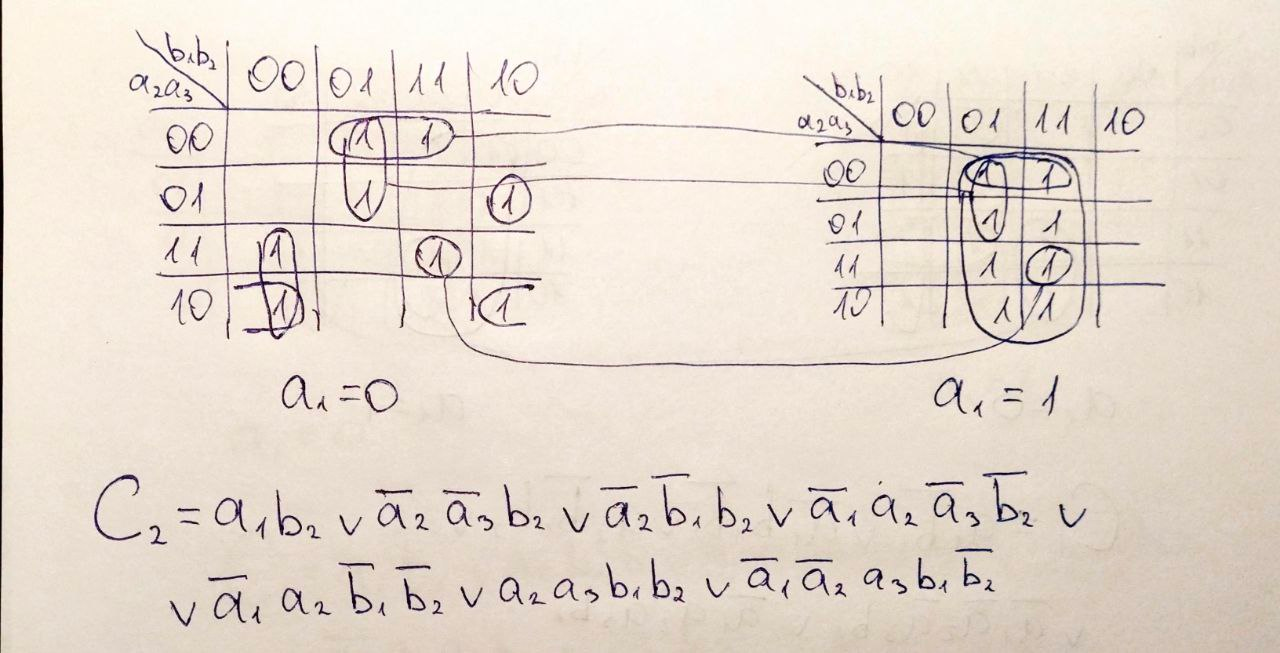 b₁b₂ 00 01 11 10
a₂a₃
00 1 1
01 1 1
11 1 1
10 1 1
a₁=0
b₁b₂ 00 01 11 10
a₂a₃
00 1 1
01 1 1
11 1 1
10 1 1
a₁=1
C₂ = a₁b₂ ∨ a̅₂ a̅₃ b₂ ∨ a̅₂ b̅₁ b₂ ∨ a̅₁ a₂ a̅₃ b̅₂ ∨
∨ a̅₁ a₂ b̅₁ b̅₂ ∨ a₂ a₃ b₁ b₂ ∨ a̅₁ a̅₂ a₃ b₁ b̅₂